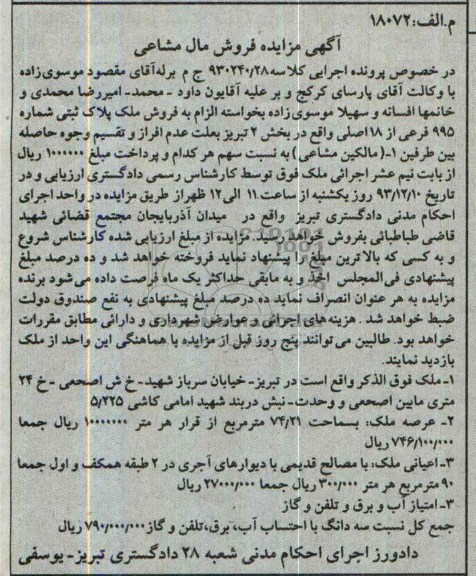 م.الف:۱۸۰۷۲
آگهی مزایده فروش مال مشاعی
در خصوص پرونده اجرایی کلاسه ۹۳۰۲۴۰/۲۸ ج م برله آقای مقصود موسوی‌زاده
با وکالت آقای پارسای کرکج و بر علیه آقایون داود - محمد- امیررضا محمدی و
خانمها افسانه و سهیلا موسوی‌زاده بخواسته الزام به فروش ملک پلاک ثبتی شماره
۹۹۵ فرعی از ۱۸ اصلی واقع در بخش ۲ تبریز بعلت عدم افراز و تقسیم وجوه حاصله
بین طرفین ۱-( مالکین مشاعی) به نسبت سهم هر کدام و پرداخت مبلغ ۱۰۰۰۰۰۰ ریال
از بابت نیم عشر اجرائی ملک فوق توسط کارشناس رسمی دادگستری ارزیابی و در
تاریخ ۹۳/۱۲/۱۰ روز یکشنبه از ساعت ۱۱ الی ۱۲ ظهراز طریق مزایده در واحد اجرای
احکام مدنی دادگستری تبریز واقع در میدان آذربایجان مجتمع قضائی شهید
قاضی طباطبائی بفروش خواهد رسید. مزایده از مبلغ ارزیابی شده کارشناس شروع
و به کسی که بالاترین مبلغ را پیشنهاد نماید فروخته خواهد شد و ده درصد مبلغ
پیشنهادی فی‌المجلس اخذ و به مابقی حداکثر یک ماه فرصت داده می‌شود برنده
مزایده به هر عنوان انصراف نماید ده درصد مبلغ پیشنهادی به نفع صندوق دولت
ضبط خواهد شد . هزینه‌های اجرائی و عوارض شهرداری و دارائی مطابق مقررات
خواهد بود. طالبین می‌توانند پنج روز قبل از مزایده با هماهنگی این واحد از ملک
بازدید نمایند.
۱-ملک فوق الذکر واقع است در تبریز- خیابان سرباز شهید- خ ش اصحعی - خ ۲۴
متری مابین اصحعی و وحدت- نبش دربند شهید امامی کاشی ۵/۲۲۵
۲- عرصه ملک: بمساحت ۷۴/۲۱ مترمربع از قرار هر متر ۱۰۰۰۰۰۰۰ ریال جمعا
۷۴۶/۱۰۰/۰۰۰ ریال
۳-اعیانی ملک: با مصالح قدیمی با دیوارهای آجری در ۲ طبقه همکف و اول جمعا
۹۰ مترمربع هر متر ۳۰۰/۰۰۰ ریال جمعا ۲۷۰۰۰/۰۰۰ ریال
۳-امتیاز آب و برق و تلفن و گاز
جمع کل نسبت سه دانگ با احتساب آب، برق،تلفن و گاز ۷۹۰/۰۰۰/۰۰۰ ریال
دادورز اجرای احکام مدنی شعبه ۲۸ دادگستری تبریز- یوسفی